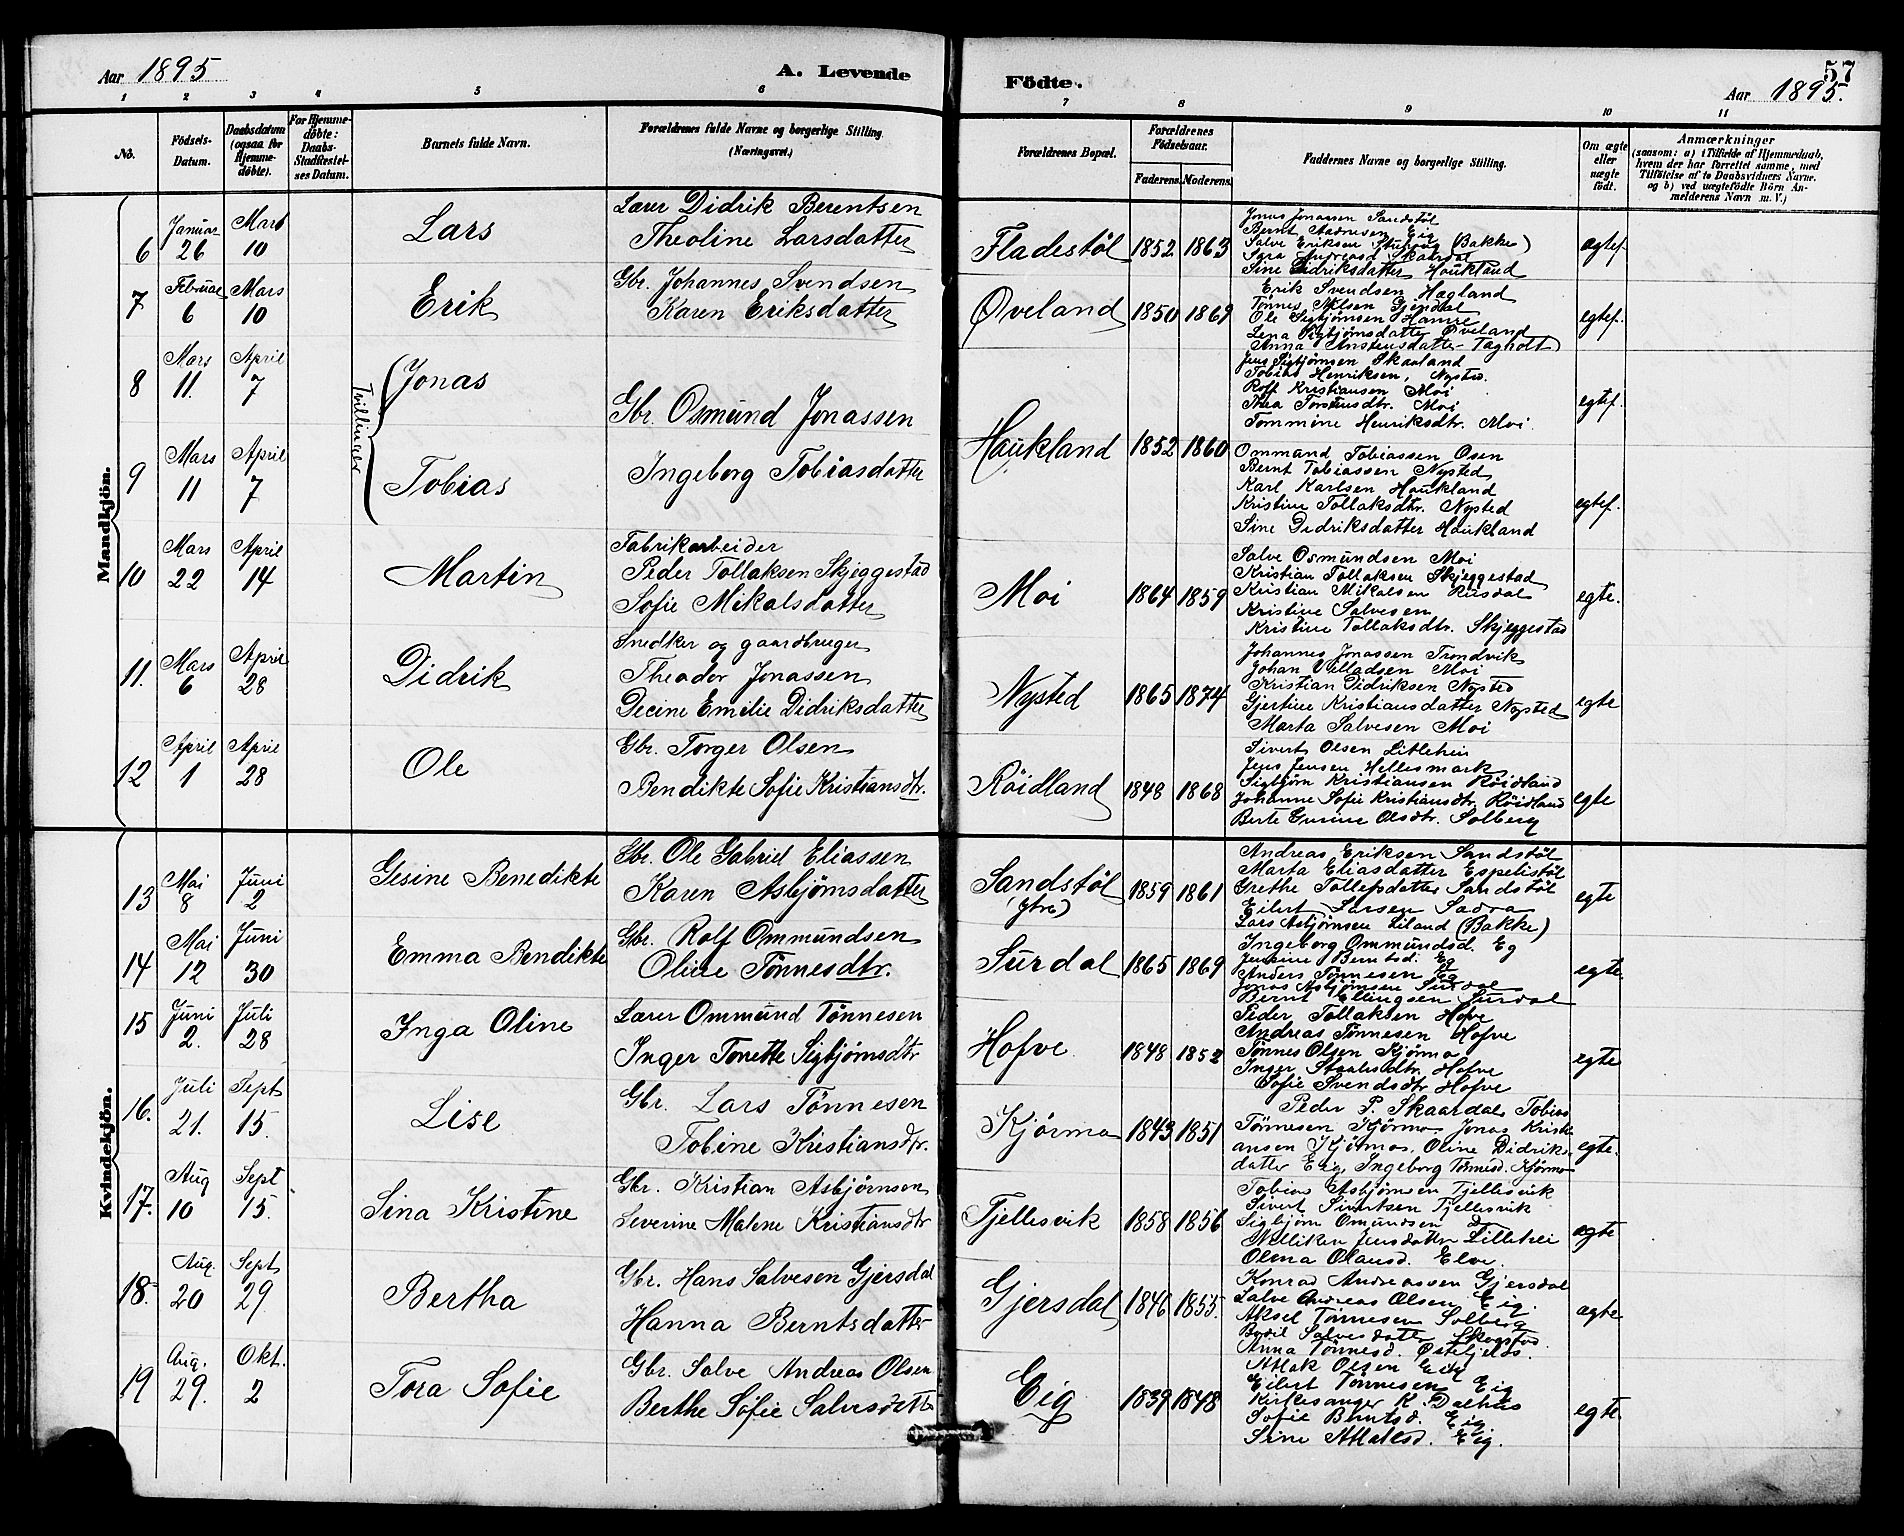 Aar 1895 A. Levende Födte. 57
Aar 1895.
1 2 3 4 5 6 7 8 9 10 11
No.
Födsels-Datum.
Daabsdatum (ogsaa for Hjemme-döbte).
For Hjemme-döbte: Daabs-Stadfæstel-ses Datum.
Barnets fulde Navn.
Forældrenes fulde Navne og borgerlige Stilling. (Næringsvei.)
Forældrenes Bopæl.
Forældrenes Födselsaar.
Faderens. Moderens.
Faddernes Navne og borgerlige Stilling.
Om ægte eller uægte födt.
Anmærkninger
(saasom: a) i Tilfælde af Hjemmedaab, hvem der har forrettet samme, med Tilföielse af to Daabsvidners Navne. og b) ved uægtefödte Börn An-melderens Navn m. V.)
Mandkjön.
6 Januar 26 Mars 10 Lars
Lærer Didrik Berentsen
Theoline Larsdatter
Fladestøl 1852 1863
Jonas Jonassen Sandstøl
Bernt Andresen Eig
Salve Eriksen (Bakke)
Sara Andreasd Skaardal
Sine Didriksdatter Haukland
ægtef.
7 Februar 6 Mars 10 Erik
Gbr. Johannes Svendsen
Karen Eriksdatter
Øveland 1850 1869
Erik Svendsen Hægland
Tønnes Nilsen Gjersdal
Ole Sigbjørnsen Hamre
Lena Sigbjørnsdatter Øveland
Anna Anstensdatter Tagholt
egtef.
8 Mars 11. April 7 Jonas
Tvillinger
Gbr. Osmund Jonassen
Ingeborg Tobiasdatter
Haukland 1852 1860
Jens Sigbjørnsen Skaaland
Tobias Henriksen, Nysted.
Rolf Kristiansen Moi
Thea Torstensdtr. Moi
Tommine Henriksdtr. Moi.
egtef.
9 Mars 11 April 7 Tobias
Ommand Tobiassen Osen
Bernt Tobiassen Nysted
Karl Karlsen Haukland
Kristine Tollaksdtr. Nysted
Sine Didriksdatter Haukland
egtef.
10 Mars 22 April 14 Martin
Fabrikarbeider
Peder Tollaksen Skjeggestad
Sofie Mikalsdatter
Moi 1864 1859
Salve Osmundsen Moi
Kristian Tollaksen Skjeggestad
Kristian Mikalsen Risdal
Kristine Salvesen
Kristine Tollaksdtr. Skjeggestad
egte.
11. Mars 6 April 28 Didrik
Snedker og gaardbruger
Theador Jonassen
Decine Emilie Didriksdatter
Nysted 1865 1874
Johannes Jonassen Trondvik
Johan Villadsen Moi
Kristian Didriksen Nysted
Gjertine Kristiansdatter Nysted
Marta Salvesen Moi
egte
12 April 1 April 28 Ole
Gbr. Torger Olsen
Bendikte Sofie Kristiansdtr.
Röidland 1848 1868
Sivert Olsen Litlehei
Jens Jensen Hellesmark
Sigbjørn Kristiansen Röidland
Johanne Sofie Kristiansdtr. Röidland
Berte Gurine Olsdtr. Solberg
egte
Kvindekjön.
13 Mai 8 Juni 2 Gesine Benedikte
Gbr. Ole Gabriel Eliassen
Karen Asbjørnsdatter
Sandstøl (ytre) 1859 1861
Andreas Eriksen Sandstøl
Marta Eliasdatter Espelistøl
Grethe Tollefsdatter Sandstøl
Eilert Larsen Sadra
Lars Asbjørnsen Liland (Bakke)
egte
14 Mai 12 Juni 30 Emma Bendikte
Gbr. Rolf Ommundsen
Oline Tønnesdtr.
Surdal 1865 1869
Ingeborg Ommundsd. Eg
Jensine Berntsd. Eg
Anders Tønnesen Eg
Jonas Asbjørnsen Surdal
Bernt Ellingsen Surdal
egte.
15 Juni 2. Juli 28 Inga Oline
Lærer Ommund Tønnesen
Inger Tonette Sigbjørnsdtr
Hofve 1848 1852
Peder Tollaksen Hofve
Andreas Tønnesen Hofve
Tønnes Olsen Kjørmo
Inger Staalesdtr Hofve
Sofie Svendsdtr Hofve
egte
16. Juli 21. Sept 15. Lise
Gbr. Lars Tønnesen
Tobine Kristiansdtr.
Kjørmo 1843 1851
Peder P. Skaardal, Tobias
Tønnesen Kjørmo, Jonas Kristi-
ansen Kjørmo, Oline Didriks-
datter Eig, Ingeborg Tønnesd. Kjørmo
egte.
17. Aug 10 Sept 15. Sina Kristine
Gbr. Kristian Asbjørnsen
Severine Malene Kristiansdtr
Tjellesvik 1858 1856
Tobias Asbjørnsen Tjellesvik
Sivert Sivertsen Tjellesvik
Sigbjørn Omundsen
Nelliken Jensdatter Lillehei
Olena Olausd. Elve.
ægte
18. Aug. 20 Sept 29. Bertha
Gbr. Hans Salvesen Gjersdal
Hanna Berntsdatter
Gjersdal 1846 1855.
Konrad Andreassen Gjersdal
Salve Andreas Olsen Eig.
Aksel Tønnesen Solberg
Bodil Salvesdatter Skogstad
Anna Tønnesd.
ægte
19 Aug. 29. Okt. 2 Tora Sofie
Gbr. Salve Andreas Olsen
Berthe Sofie Salvesdatter
Eig 1839 1848
Atlak Olsen Eig
Eilert Tønnesen Eig
Kirkesanger K. Dalhus
Sofie Berntsd. Eig.
Sine Atlaksd. Eig.
egte.